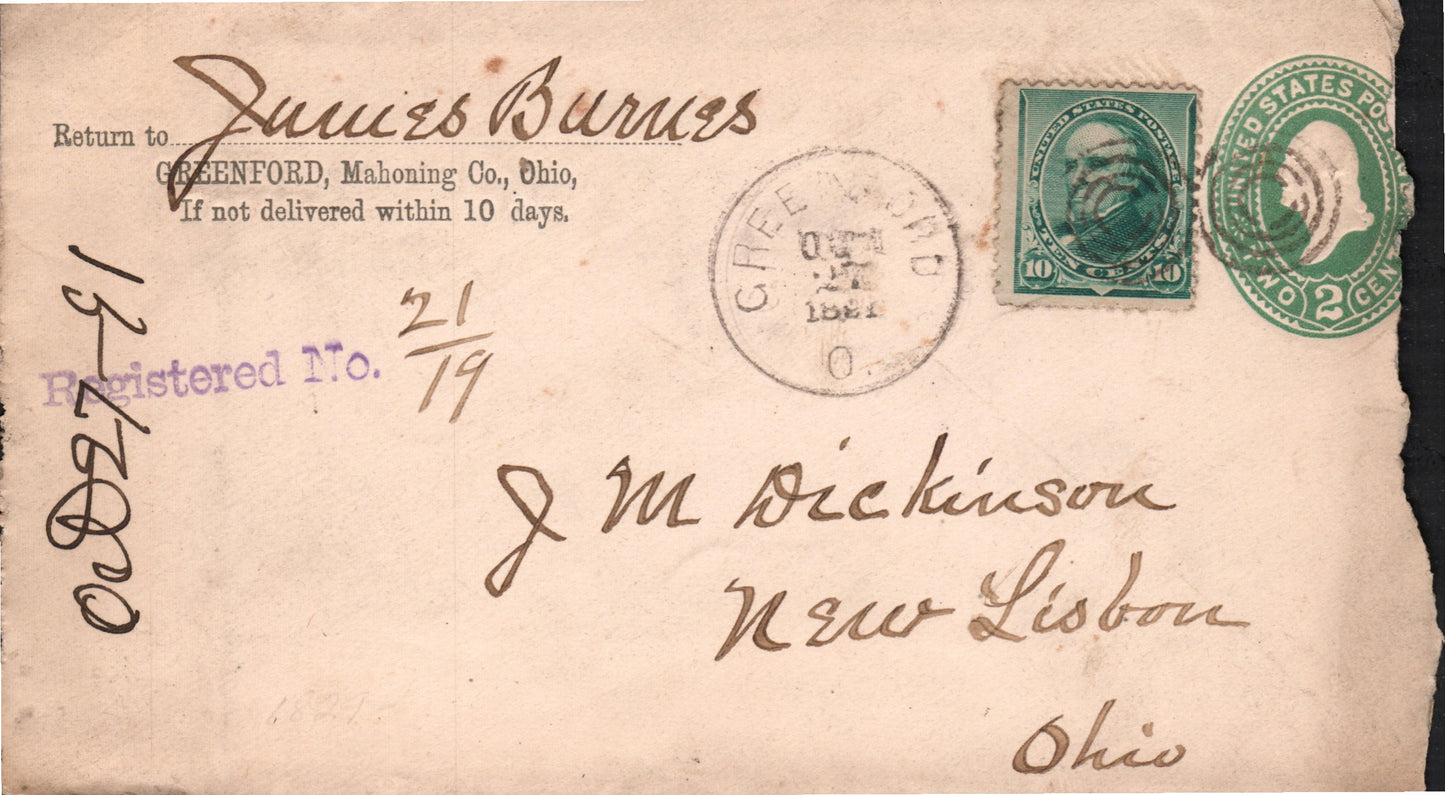 Return to James Burnes
GREENFORD, Mahoning Co., Ohio,
If not delivered within 10 days.
Oct 27-91
Registered No. 21
19
GREENFORD
27
1891
O.
UNITED STATES POSTAGE
10 TEN CENTS 10
UNITED STATES POS
TWO 2 CEN
J M Dickinson
New Lisbon
Ohio